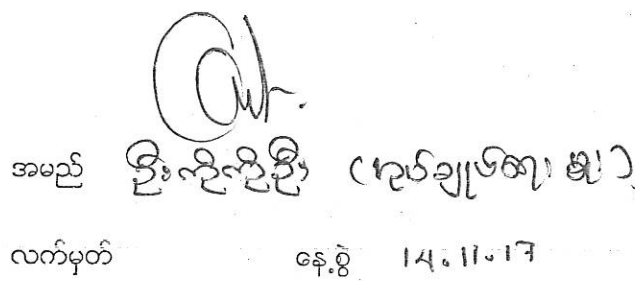 အမည် ဦးကိုကိုဦး (အုပ်ချုပ်ရေးမှူး)
လက်မှတ် နေ့စွဲ 14.11.17